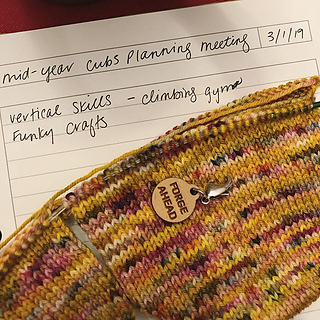 mid-year cubs planning meeting
3/1/19
vertical skills - climbing gym
Funky crafts
FORGE
AHEAD